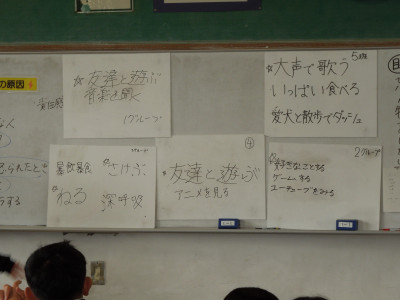 の原因
☆友達と遊ぶ
音楽を聞く
1グループ
5班
☆大声で歌う
いっぱい食べる
愛犬と散歩でダッシュ
暴飲暴食 さけぶ
ねる 深呼吸
④
友達と遊ぶ
アニメを見る
2グループ
好きなことをする
ゲームする
ユーチューブをみる
られたとき